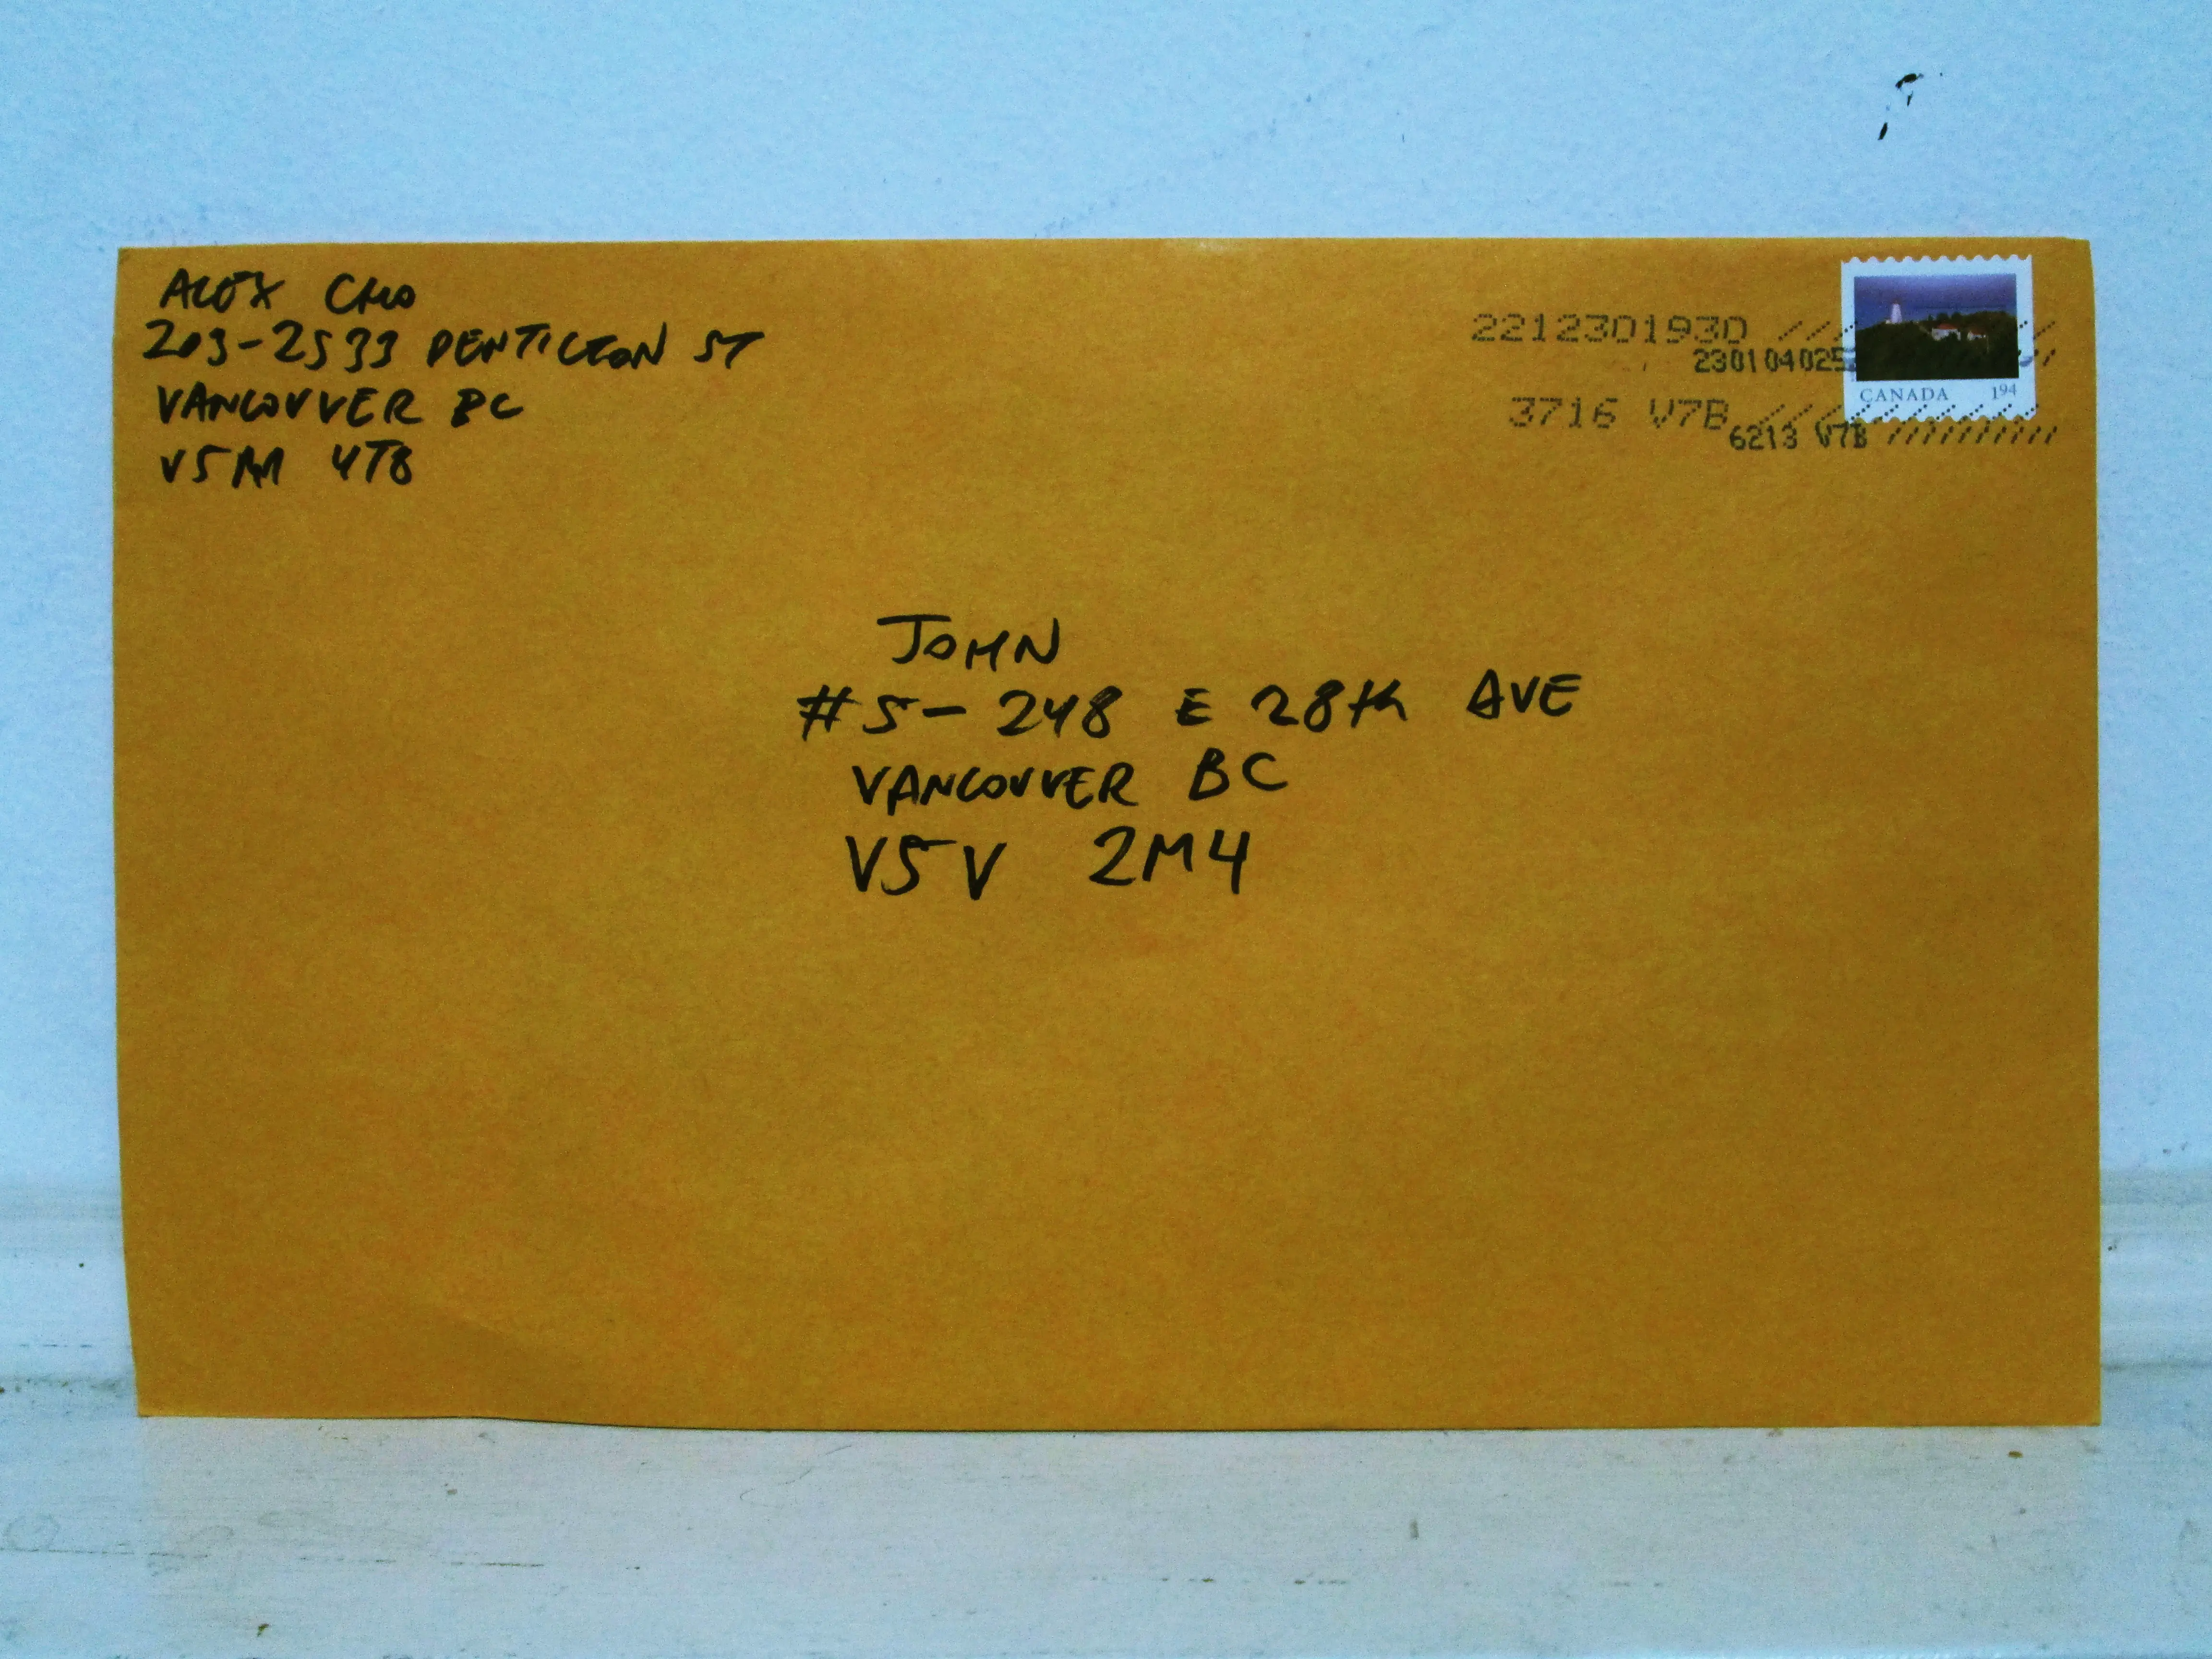 ALEX CHO
203-2533 PENTICTON ST
VANCOUVER BC
V5M 4T8
2212301930
230104025
3716 V7B
6213 V7B
CANADA 194
JOHN
#5-248 E 28th AVE
VANCOUVER BC
V5V 2M4